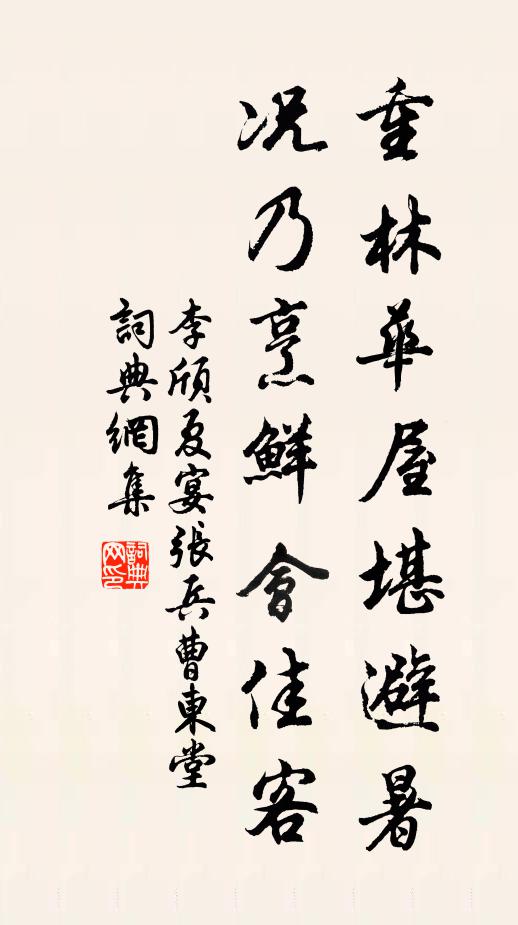 重林華屋堪避暑
況乃烹鮮會佳客
李頎夏宴張兵曹東堂
詞典網集
詞典網印